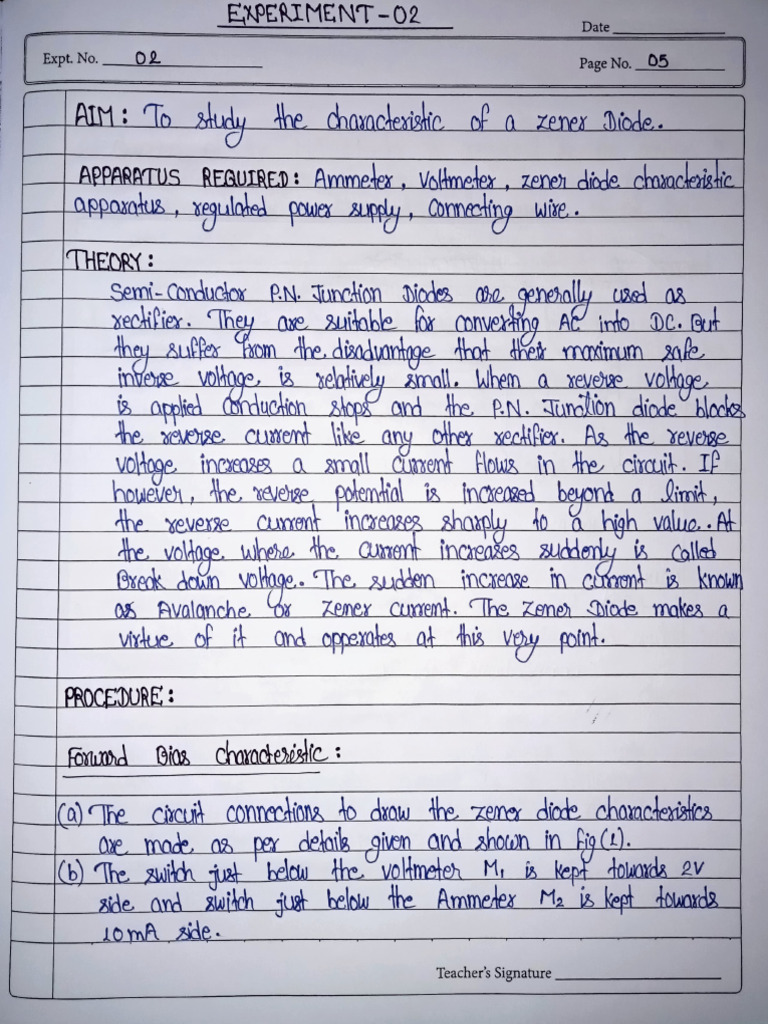 EXPERIMENT-02
Date
Expt. No. 02
Page No. 05
AIM: To study the characteristic of a zener Diode.
APPARATUS REQUIRED: Ammeter, Voltmeter, zener diode characteristic
apparatus, regulated power supply, Connecting wire.
THEORY:
Semi-Conductor P.N. Junction Diodes are generally used as
rectifier. They are suitable for converting AC into DC. But
they suffer from the disadvantage that their maximum safe
inverse voltage is relatively small. When a reverse voltage
is applied conduction stops and the P.N. Junction diode blocks
the reverse current like any other rectifier. As the reverse
voltage increases a small current flows in the circuit. If
however, the reverse potential is increased beyond a limit,
the reverse current increases sharply to a high value. At
the voltage where the current increases suddenly is called
Break down voltage. The sudden increase in current is known
as Avalanche or Zener current. The Zener Diode makes a
virtue of it and opperates at this very point.
PROCEDURE:
Forward Bias Characteristic:
(a) The circuit connections to draw the zener diode characteristics
are made as per details given and shown in fig(1).
(b) The switch just below the voltmeter M₁ is kept towards 2V
side and switch just below the Ammeter M₂ is kept towards
10mA side.
Teacher's Signature